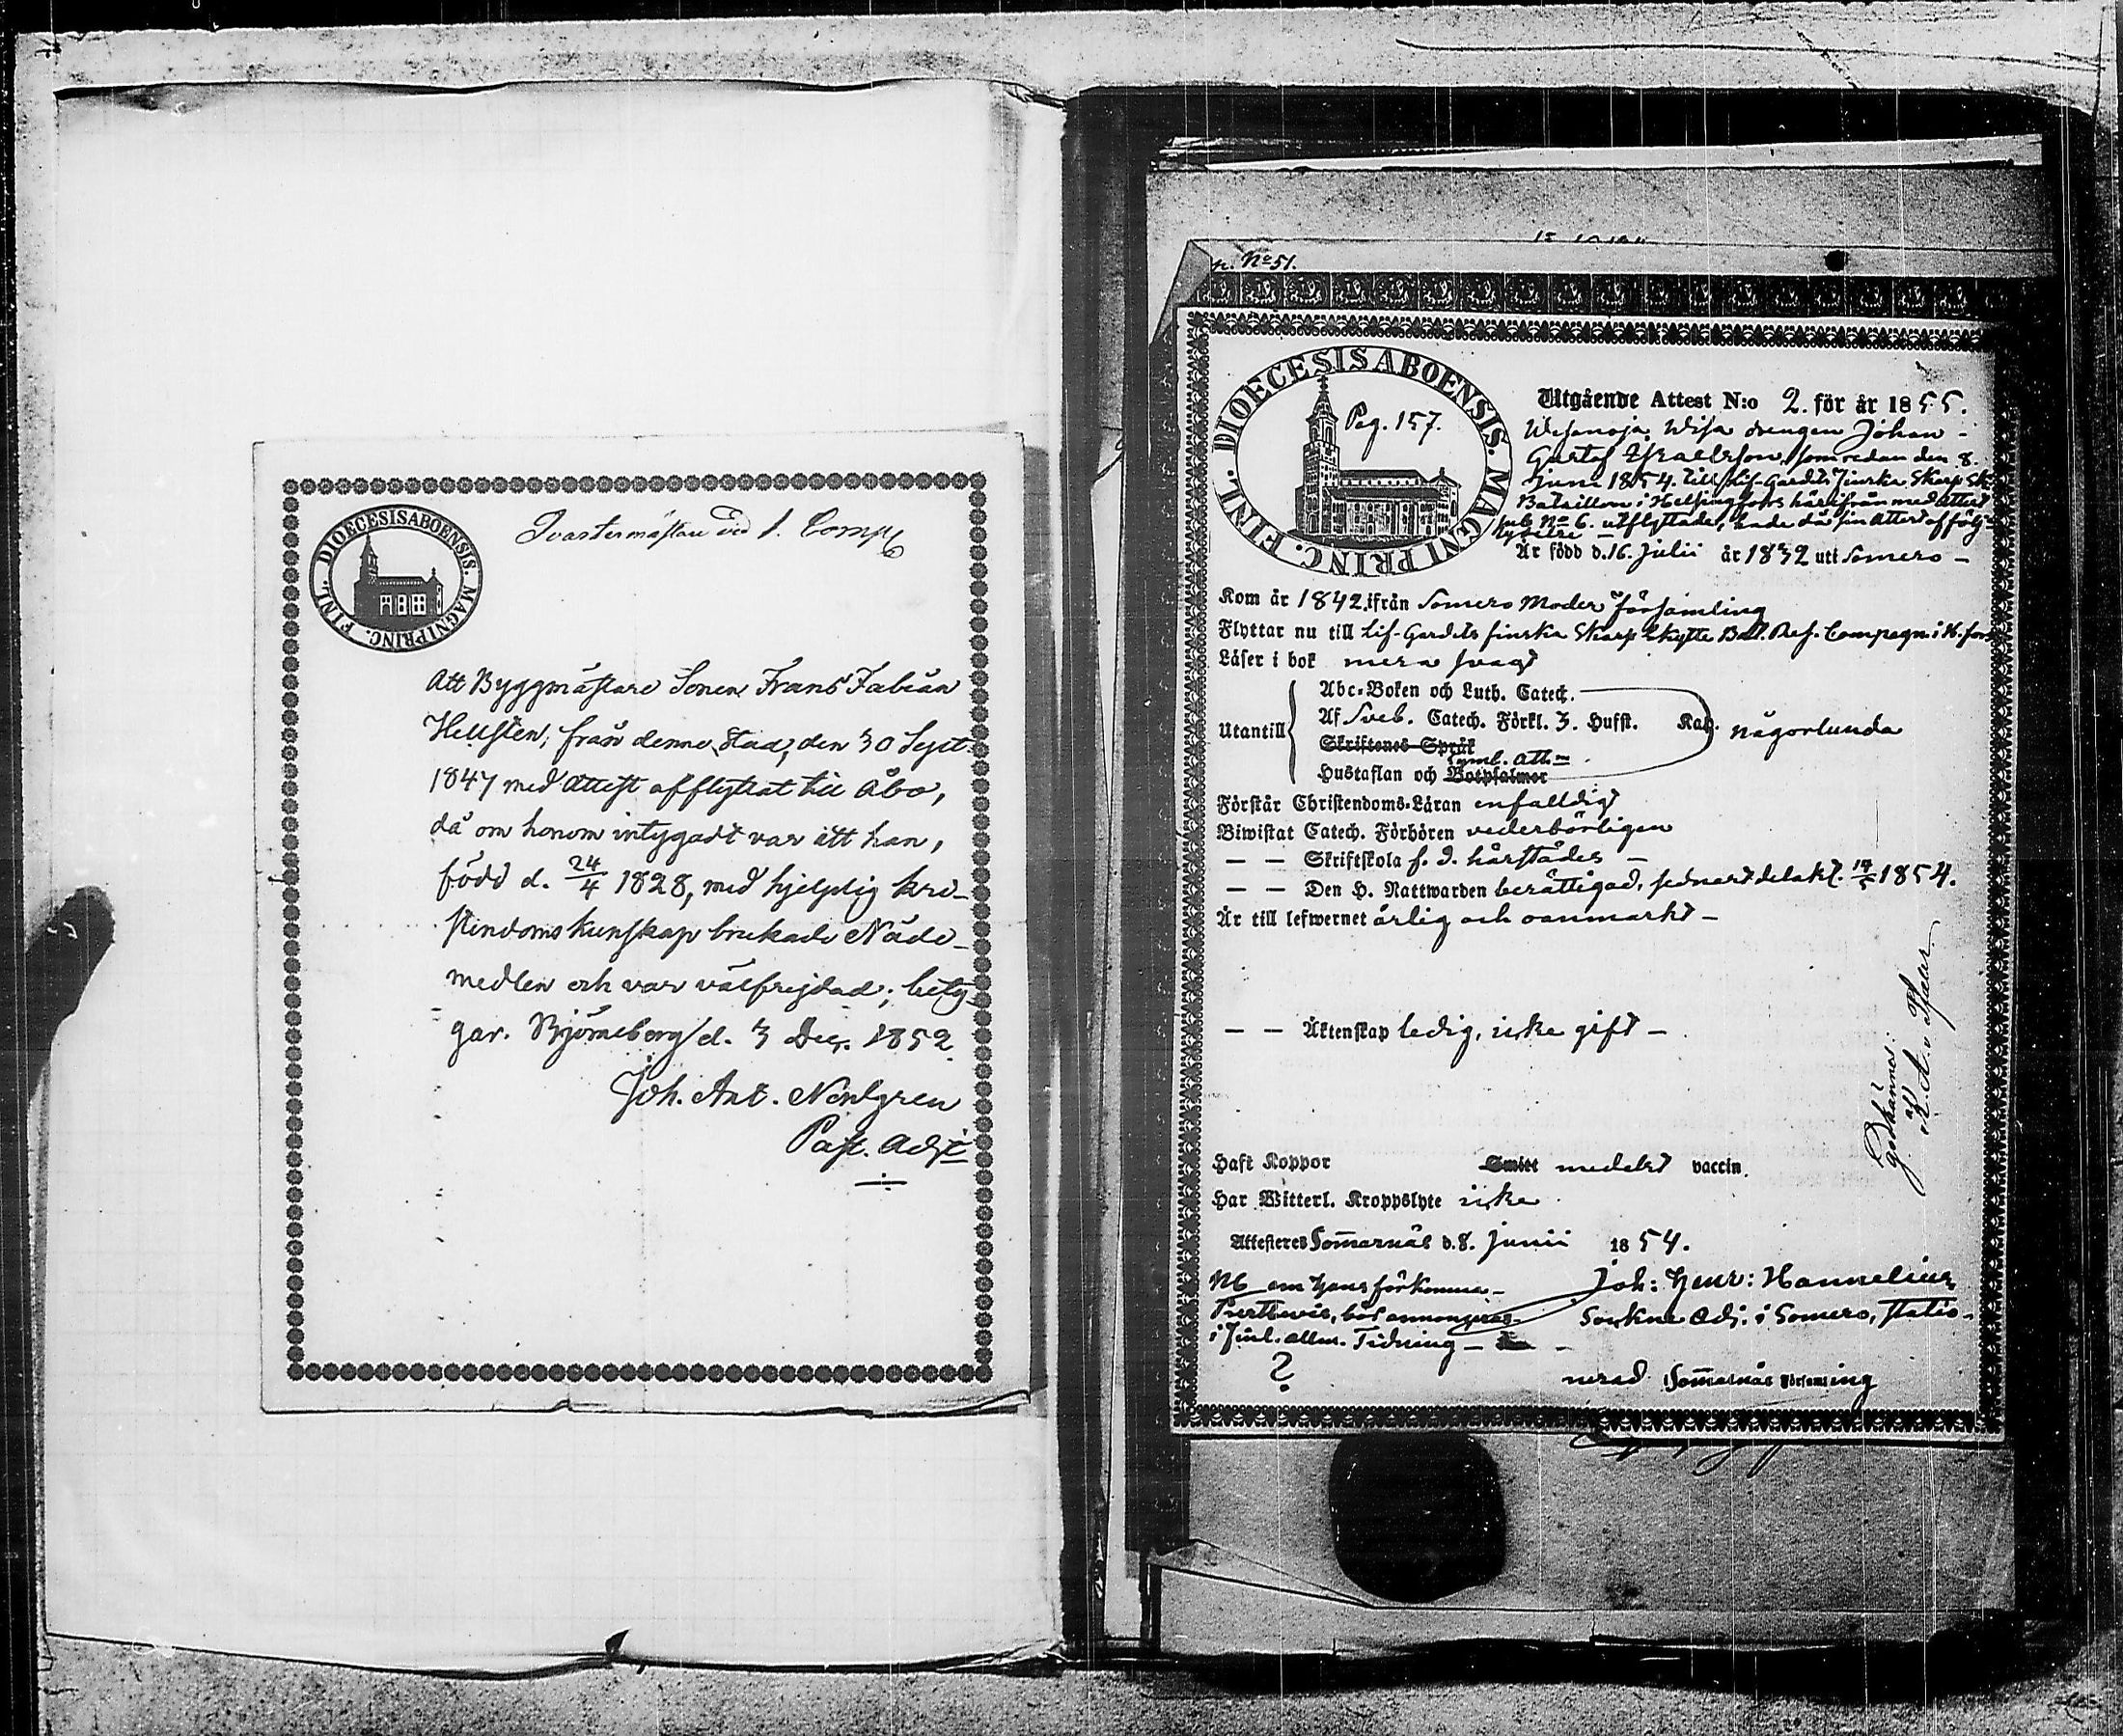 DIOECESIS ABOENSIS. MAGNI PRINC. FINL.
Qvartermästare vid 1. Comp.
Att Byggmästare Sonen Frans Fabian
Hellsten, från denne stad, den 30 Sept.
1847 med Attest afflyttat till Åbo,
då om honom intygadt var att han,
född d. 24/4 1828, med hjelplig kri-
stendomskunskap brukade Nåde-
medlen och var välfrejdad; bety-
gar. Björneborg d. 3 Dec. 1852.
Joh. Ant. Nordgren
Past. Adj:
N:o 51.
DIOECESIS ABOENSIS. MAGNI PRINC. FINL.
Pag. 157.
Utgående Attest N:o 2. för år 1855.
Wisa drengen Johan
Gustaf Israelsson, som redan den 8.
Junii 1854. till Lif-Gardets Finska Skarp Sk.
Bataillon i Helsingfors härifrån med attest
sub No 6. utflyttade, hade då sin Attest af följ-
Är född d. 16. Julii år 1832 uti Somero –
Kom år 1842. ifrån Somero Moder församling
Flyttar nu till Lif-Gardets finska Skarp Skytte Bat. Res. Compagn. i H.fors
Läser i bok mera svagt
Utantill
Abc-Boken och Luth. Catech.
Af Sveb. Catech. Förkl. 3. Hufst. Kap. någorlunda
Skriftenes Språk
Symb. Ath.
Hustaflan och Botpsalmer
Förstår Christendoms-Läran enfaldigt
Biwistat Catech. Förhören vederbörligen
— — Skriftskola f. d. härstädes –
— — Den H. Nattwarden berättigad, sednast delakt. 14/5 1854.
Är till lefwernet ärlig och oanmärkt –
— — Äktenskap ledig, icke gift –
Haft Koppor Smitt medelst vaccin.
Har Witterl. Kroppslyte icke
Attesteres Somernäs d. 8. Junii 1854.
NB om Hans förkomna
Prestbevis, bör annonceras
i Finl. allm. Tidning –
?
Joh: Henr: Hannelius
Sockne Adj. i Somero, statio-
nerad i Somernäs Församling
godkännes: